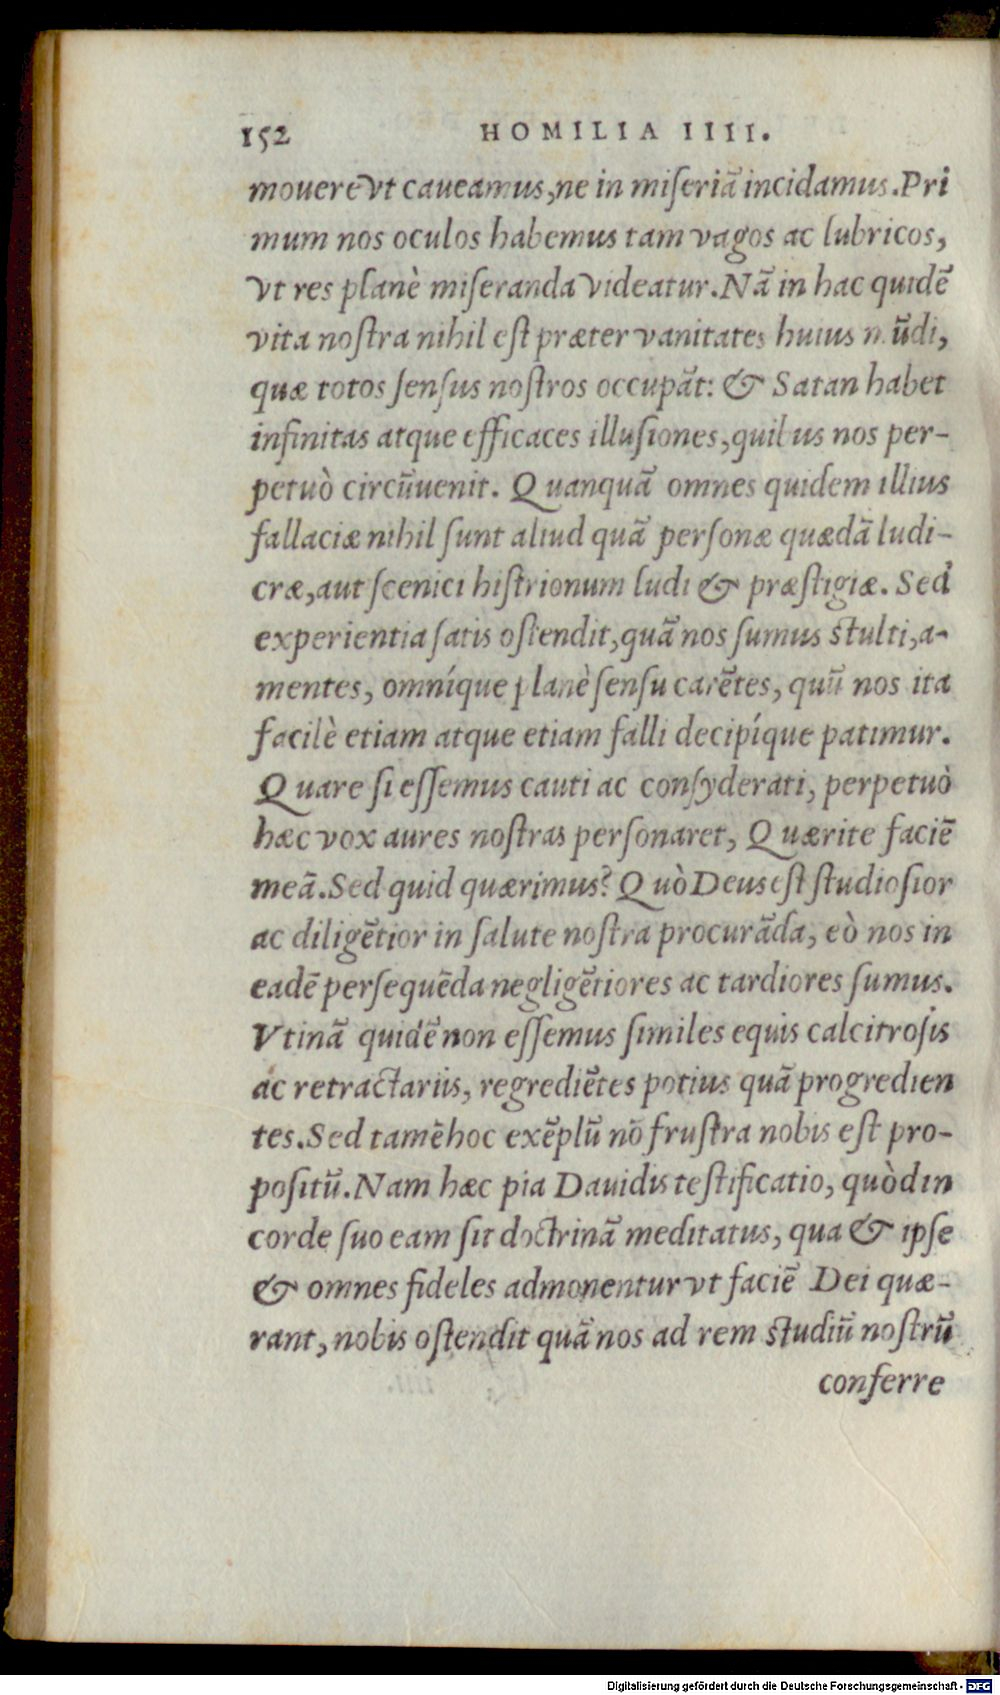 152 HOMILIA IIII.
mouere vt caueamus, ne in miſeriã incidamus. Pri
mum nos oculos habemus tam vagos ac lubricos,
vt res planè miſeranda videatur. Nã in hac quidẽ
vita noſtra nihil eſt præter vanitates huius mũdi,
quæ totos ſenſus noſtros occupãt: & Satan habet
infinitas atque efficaces illuſiones, quibus nos per-
petuò circũuenit. Quanquã omnes quidem illius
fallaciæ nihil ſunt aliud quã perſonæ quædã ludi-
cræ, aut ſcenici hiſtrionum ludi & præſtigiæ. Sed
experientia ſatis oſtendit, quã nos ſumus ſtulti, a-
mentes, omníque planè ſenſu carẽtes, quũ nos ita
facilè etiam atque etiam falli decipíque patimur.
Quare ſi eſſemus cauti ac conſyderati, perpetuò
hæc vox aures noſtras perſonaret, Quærite faciẽ
meã. Sed quid quærimus? Quò Deus eſt ſtudioſior
ac diligẽtior in ſalute noſtra procurãda, eò nos in
eadẽ perſequẽda negligẽtiores ac tardiores ſumus.
Vtinã quidẽ non eſſemus ſimiles equis calcitroſis
ac retractariis, regrediẽtes potius quã progredien
tes. Sed tamẽ hoc exẽplũ nõ fruſtra nobis eſt pro-
poſitũ. Nam hæc pia Dauidis teſtificatio, quòd in
corde ſuo eam ſit doctrinã meditatus, qua & ipſe
& omnes fideles admonentur vt faciẽ Dei quæ-
rant, nobis oſtendit quã nos ad rem ſtudiũ noſtrũ
conferre
Digitalisierung gefördert durch die Deutsche Forschungsgemeinschaft - DFG